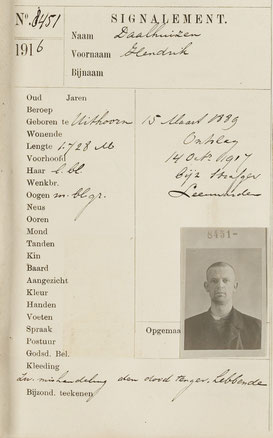 No. 8451 SIGNALEMENT.
1916 Naam Daalhuizen
Voornaam Hendrik
Bijnaam
Oud Jaren
Beroep
Geboren te Uithoorn 15 Maart 1889
Wonende Ontslag
Lengte 1.728 M 14 Oct. 1917
Voorhoofd
Haar l. bl bijz Strafgev
Wenkbr. Leeuwarden
Oogen m. bl gr.
Neus
Ooren
Mond
Tanden
Kin
Baard
Aangezicht
Kleur
Handen
Voeten
Spraak
Postuur
Godsd. Bel.
Kleeding
Opgemaa
8451-
mishandeling den dood tengev. hebbende
Bijzond. teekenen